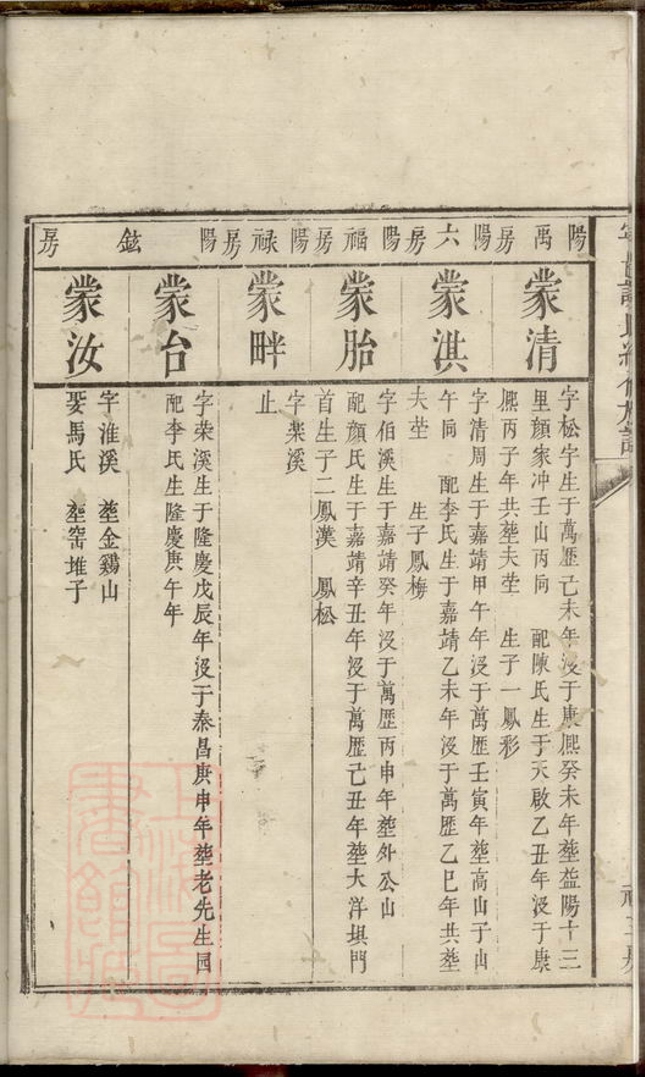 陽禹房陽六房陽福房陽祿房陽鉉房
蒙清
字松字生于萬歷己未年沒于康熙癸未年塟益陽十三
里顔家冲壬山丙向　配陳氏生于天啟乙丑年沒于康
熙丙子年共塟夫茔　生子一鳳彩
蒙淇
字清周生于嘉靖甲午年沒于萬歷壬寅年塟高山子山
午向　配李氏生于嘉靖乙未年沒于萬歷乙巳年共塟
夫茔　　生子鳳梅
蒙胎
字伯溪生于嘉靖癸年沒于萬歷丙申年塟外公山
配顔氏生于嘉靖辛丑年沒于萬歷己丑年塟大洋垻門
首生子二鳳漢　鳳松
蒙畔
字樂溪
止
蒙台
字荣溪生于隆慶戊辰年沒于泰昌庚申年塟老先生园
配李氏生隆慶庚午年
蒙汝
字淮溪　塟金鷄山
娶馬氏　塟窑堆子